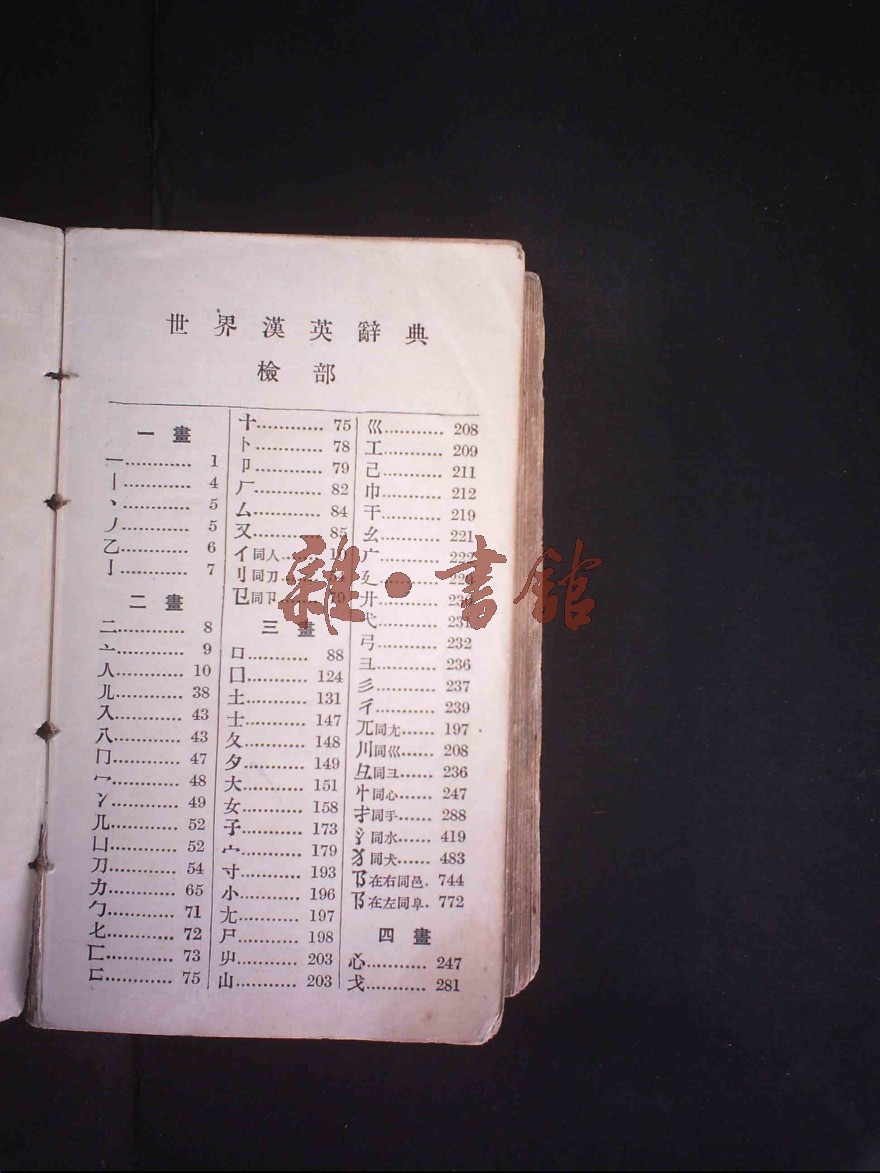 世界漢英辭典
檢部
一畫
一............ 1
丨............ 4
丶............ 5
丿............ 5
乙............ 6
亅............ 7
二畫
二............ 8
亠............ 9
人............ 10
儿............ 38
入............ 43
八............ 43
冂............ 47
冖............ 48
冫............ 49
几............ 52
凵............ 52
刀............ 54
力............ 65
勹............ 71
匕............ 72
匚............ 73
匸............ 75
十............ 75
卜............ 78
卩............ 79
厂............ 82
厶............ 84
又............ 85
亻同人........ 10
刂同刀........ 54
㔾同卩........ 79
三畫
口........... 88
囗........... 124
土........... 131
士........... 147
夂........... 148
夕........... 149
大........... 151
女........... 158
子........... 173
宀........... 179
寸........... 193
小........... 196
尢........... 197
尸........... 198
屮........... 203
山........... 203
巛........... 208
工........... 209
己........... 211
巾........... 212
干........... 219
幺........... 221
广........... 222
廴...........
廾........... 230
弋........... 231
弓........... 232
彐........... 236
彡........... 237
彳........... 239
兀同尢...... 197
川同巛...... 208
彑同彐...... 236
忄同心...... 247
扌同手...... 288
氵同水...... 419
犭同犬...... 483
阝在右同邑. 744
阝在左同阜. 772
四畫
心........... 247
戈........... 281
雜·書館